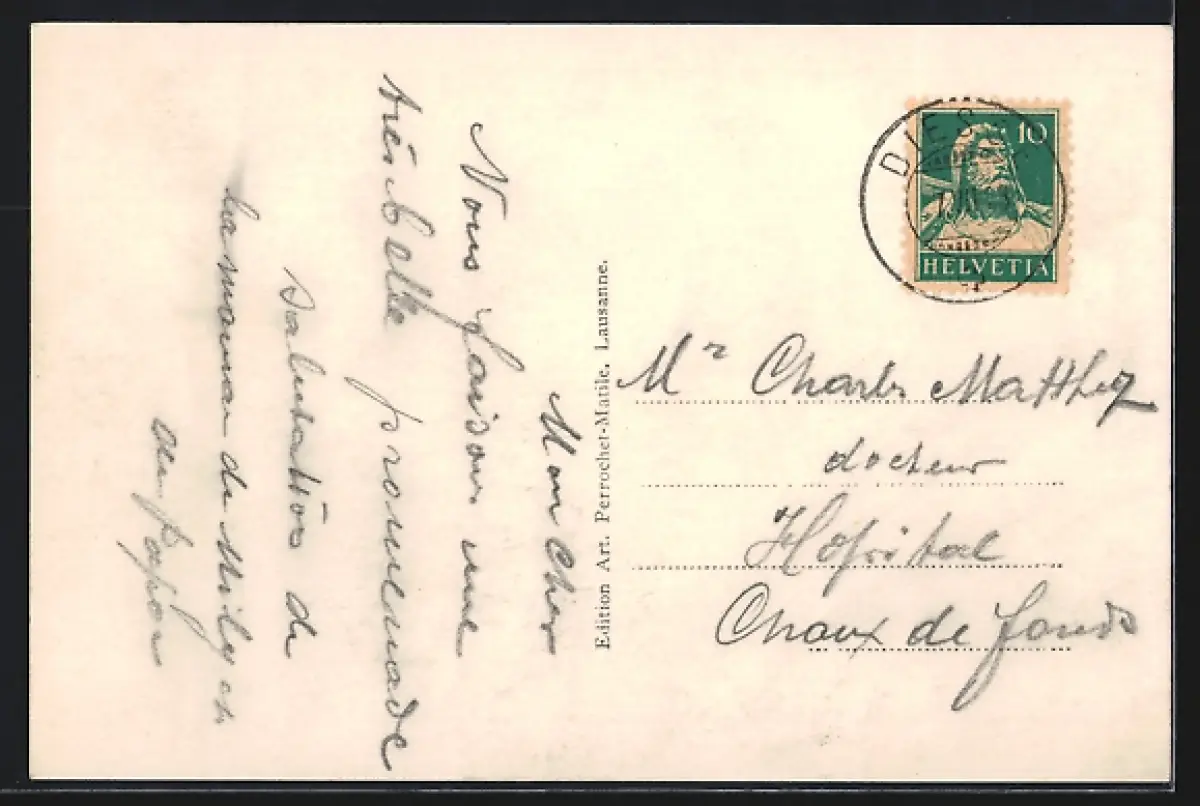 Mon Cher
Nous faisons une
très belle promenade
Salutation de
ta maman de Milly et
du papa
Edition Art. Perrochet-Matile, Lausanne.
DIES
10
HELVETIA
Mr Charles Matthey
docteur
Hôpital
Chaux de fonds